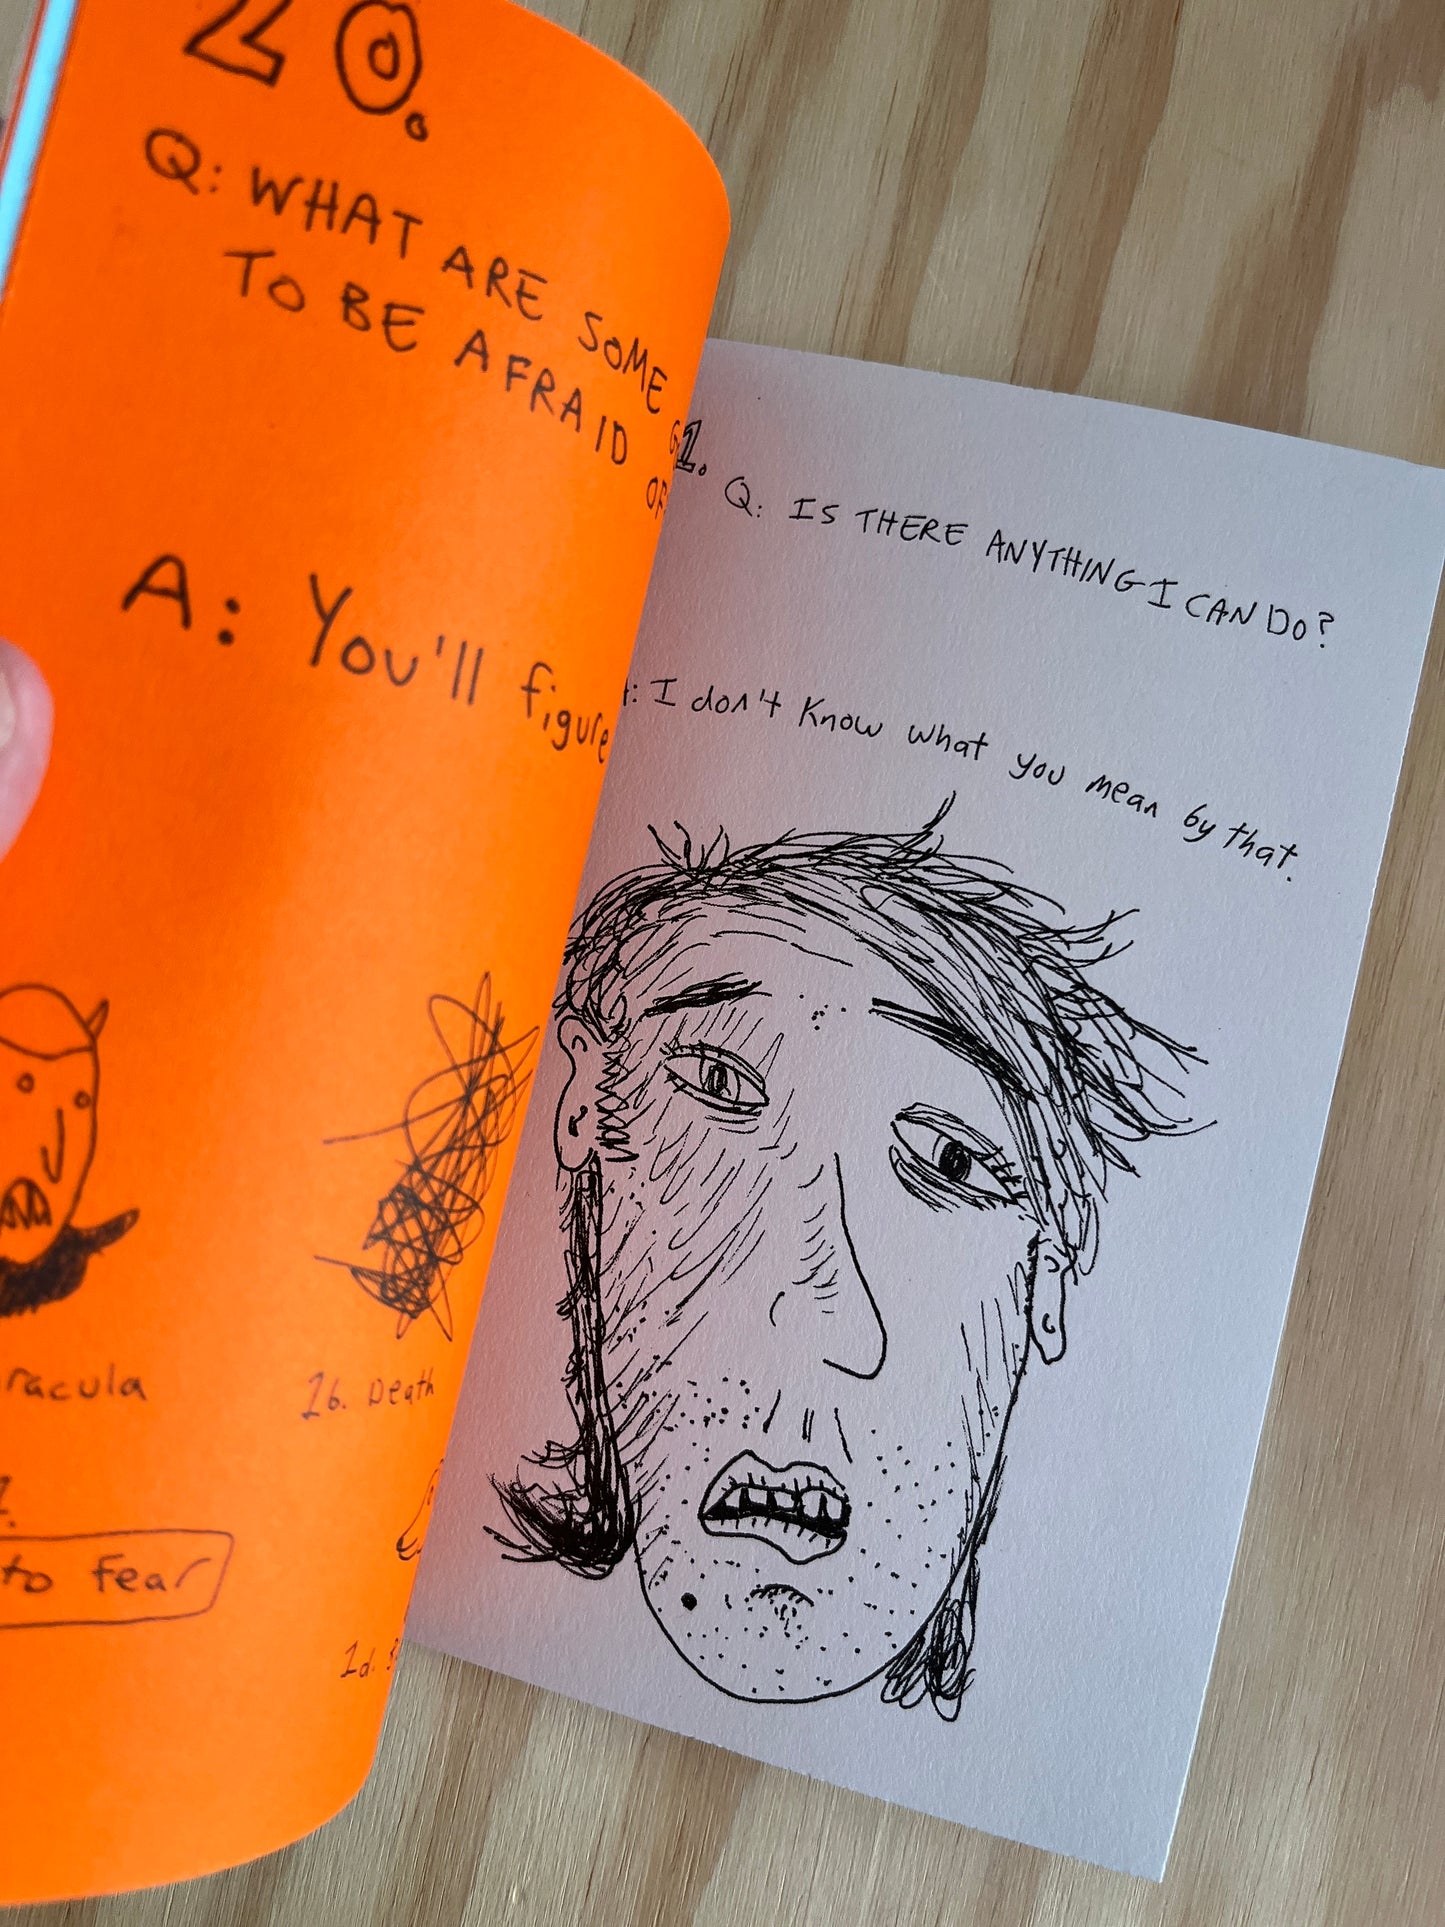 20.
Q: WHAT ARE SOME
TO BE AFRAID OF
A: You'll figure
racula
1b. Death
to fear
1d.
1.
Q: IS THERE ANYTHING I CAN DO?
I don't know what you mean by that.